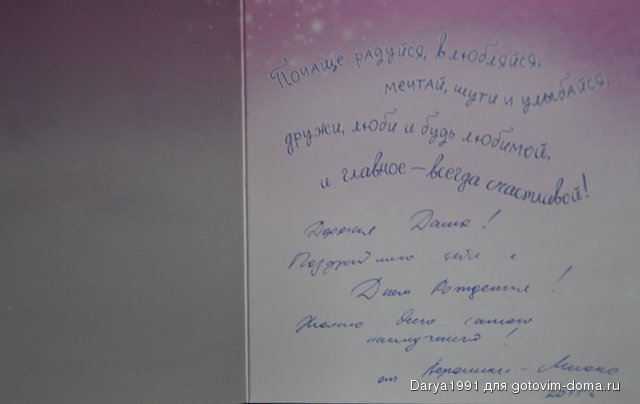 Почаще радуйся, влюбляйся,
мечтай, шути и улыбайся,
дружи, люби и будь любимой,
и главное – всегда счастливой!
Дорогая Даша!
Поздравляю тебя с
Днем Рождения!
Желаю всего самого
наилучшего!
от
Darya1991 для gotovim-doma.ru